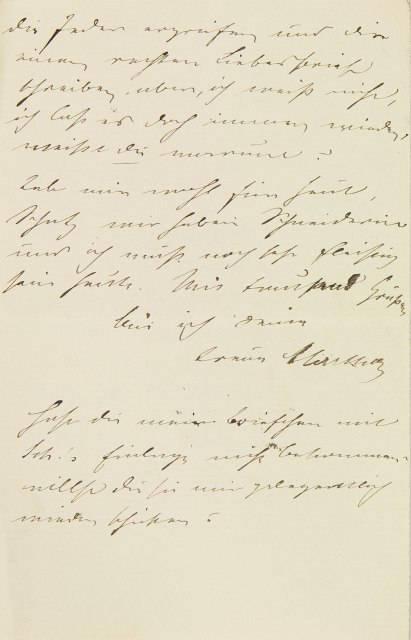 die Feder ergreifen und dir
einen rechten Liebesbrief
schreiben, aber, ich weiß nicht,
ich laß es doch immer wieder,
weißt du warum?
Leb mir wohl für heut,
Schatz, wir haben Schneiderin
und ich muß noch sehr fleißig
sein heute. Mit tausend Grüßen
bin ich deine
treue Martha
Hast du mein Briefchen mit
Sch.'s Einlage nicht bekommen?
willst du sie mir gelegentlich
wieder schicken?